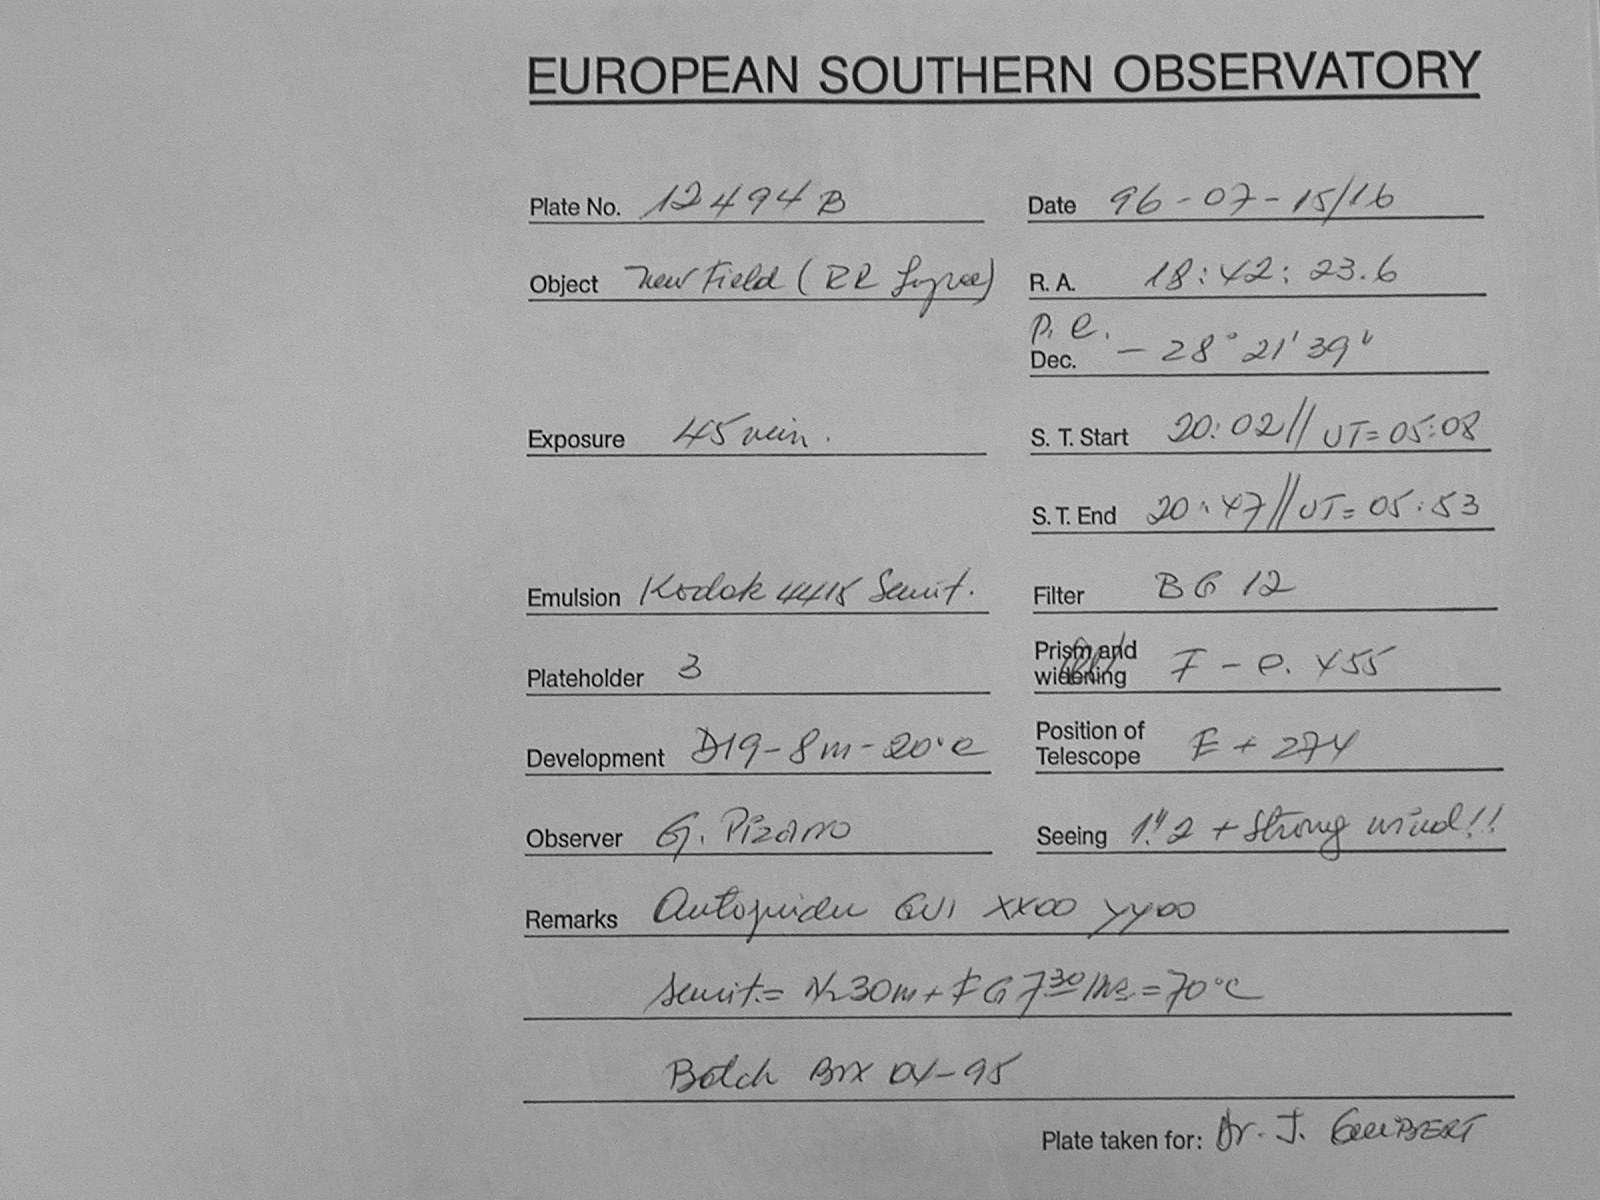 EUROPEAN SOUTHERN OBSERVATORY
Plate No. 12494 B
Date 96-07-15/16
Object New Field (RR Lyrae)
R. A. 18:42:23.6
p. e.
Dec. -28° 21' 39"
Exposure 45 min.
S. T. Start 20:02// UT=05:08
S. T. End 20:47// UT=05:53
Emulsion Kodak 4415 Sensit.
Filter BG 12
Plateholder 3
Prism and
widening F - e. 455
Development D19-8m-20°c
Position of
Telescope E + 274
Observer G. Pizarro
Seeing 1".2 + Strong wind!!
Remarks Autoguider GV1 XX00 YY00
Sensit.= N2 30m + FG 7 30 hrs = 70°C
Batch Box 04-95
Plate taken for: Dr. J. GUIBERT